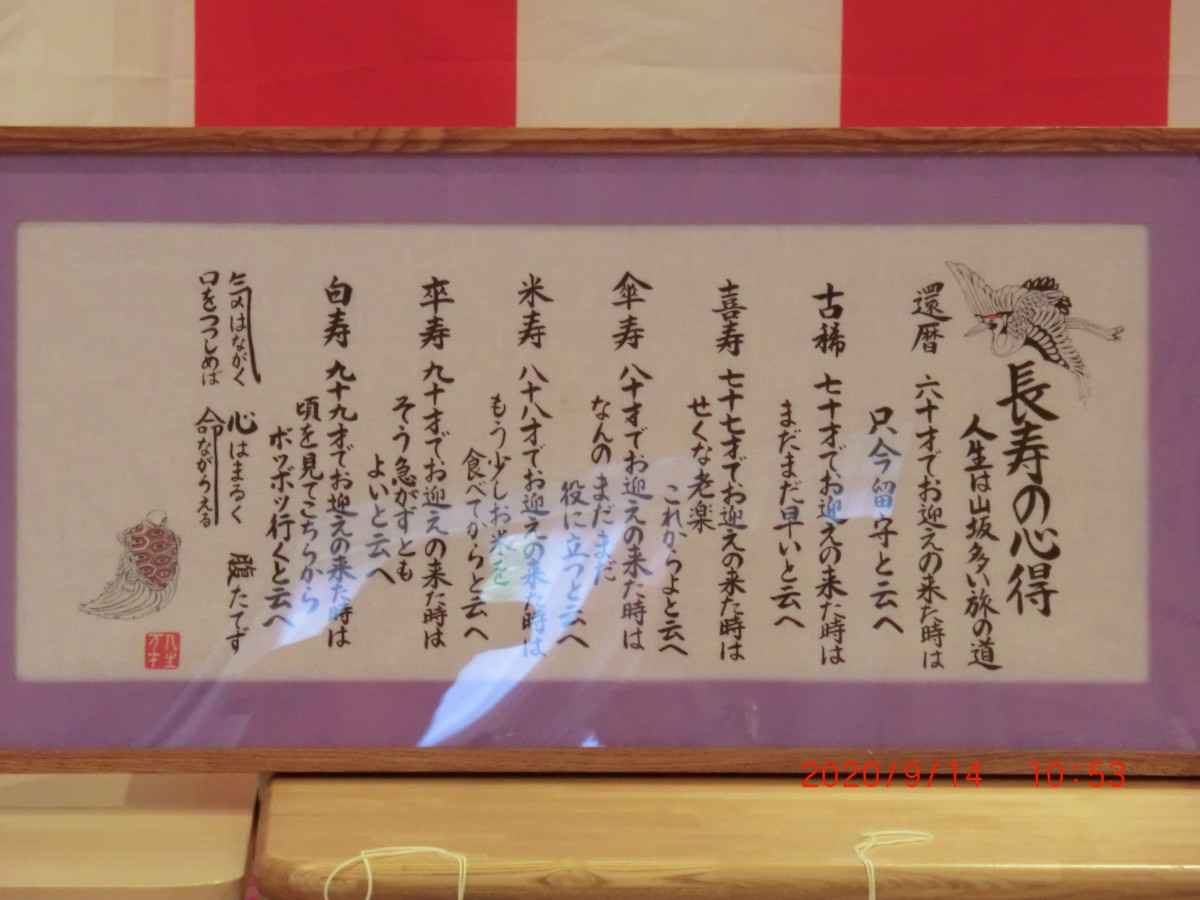 長寿の心得
人生は山坂多い旅の道
還暦 六十才でお迎えの来た時は
只今留守と云へ
古稀 七十才でお迎えの来た時は
まだまだ早いと云へ
喜寿 七十七才でお迎えの来た時は
せくな老楽
これからよと云へ
傘寿 八十才でお迎えの来た時は
なんのまだまだ
役に立つと云へ
米寿 八十八才でお迎えの来た時は
もう少しお米を
食べてからと云へ
卒寿 九十才でお迎えの来た時は
そう急がずとも
よいと云へ
白寿 九十九才でお迎えの来た時は
頃を見てこちらから
ボツボツ行くと云へ
気はながく 心はまるく 腹たてず
口をつつしめば 命ながらえる
人生
万才
2020/9/14 10:53